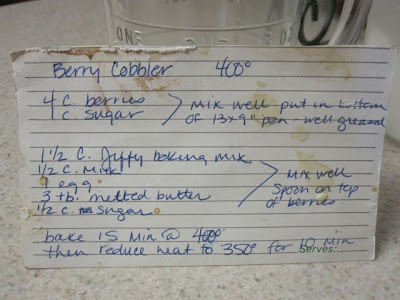 ONE
Berry Cobbler 400°
4 C. berries
1 C. sugar
mix well put in bottom
of 13x9" pan - well greased
1 1/2 C. Jiffy baking mix
1/2 C. milk
1 egg
3 tb. melted butter
1/2 C. sugar
mix well
spoon on top
of berries
bake 15 min @ 400°
then reduce heat to 350° for 10 min
Serves: